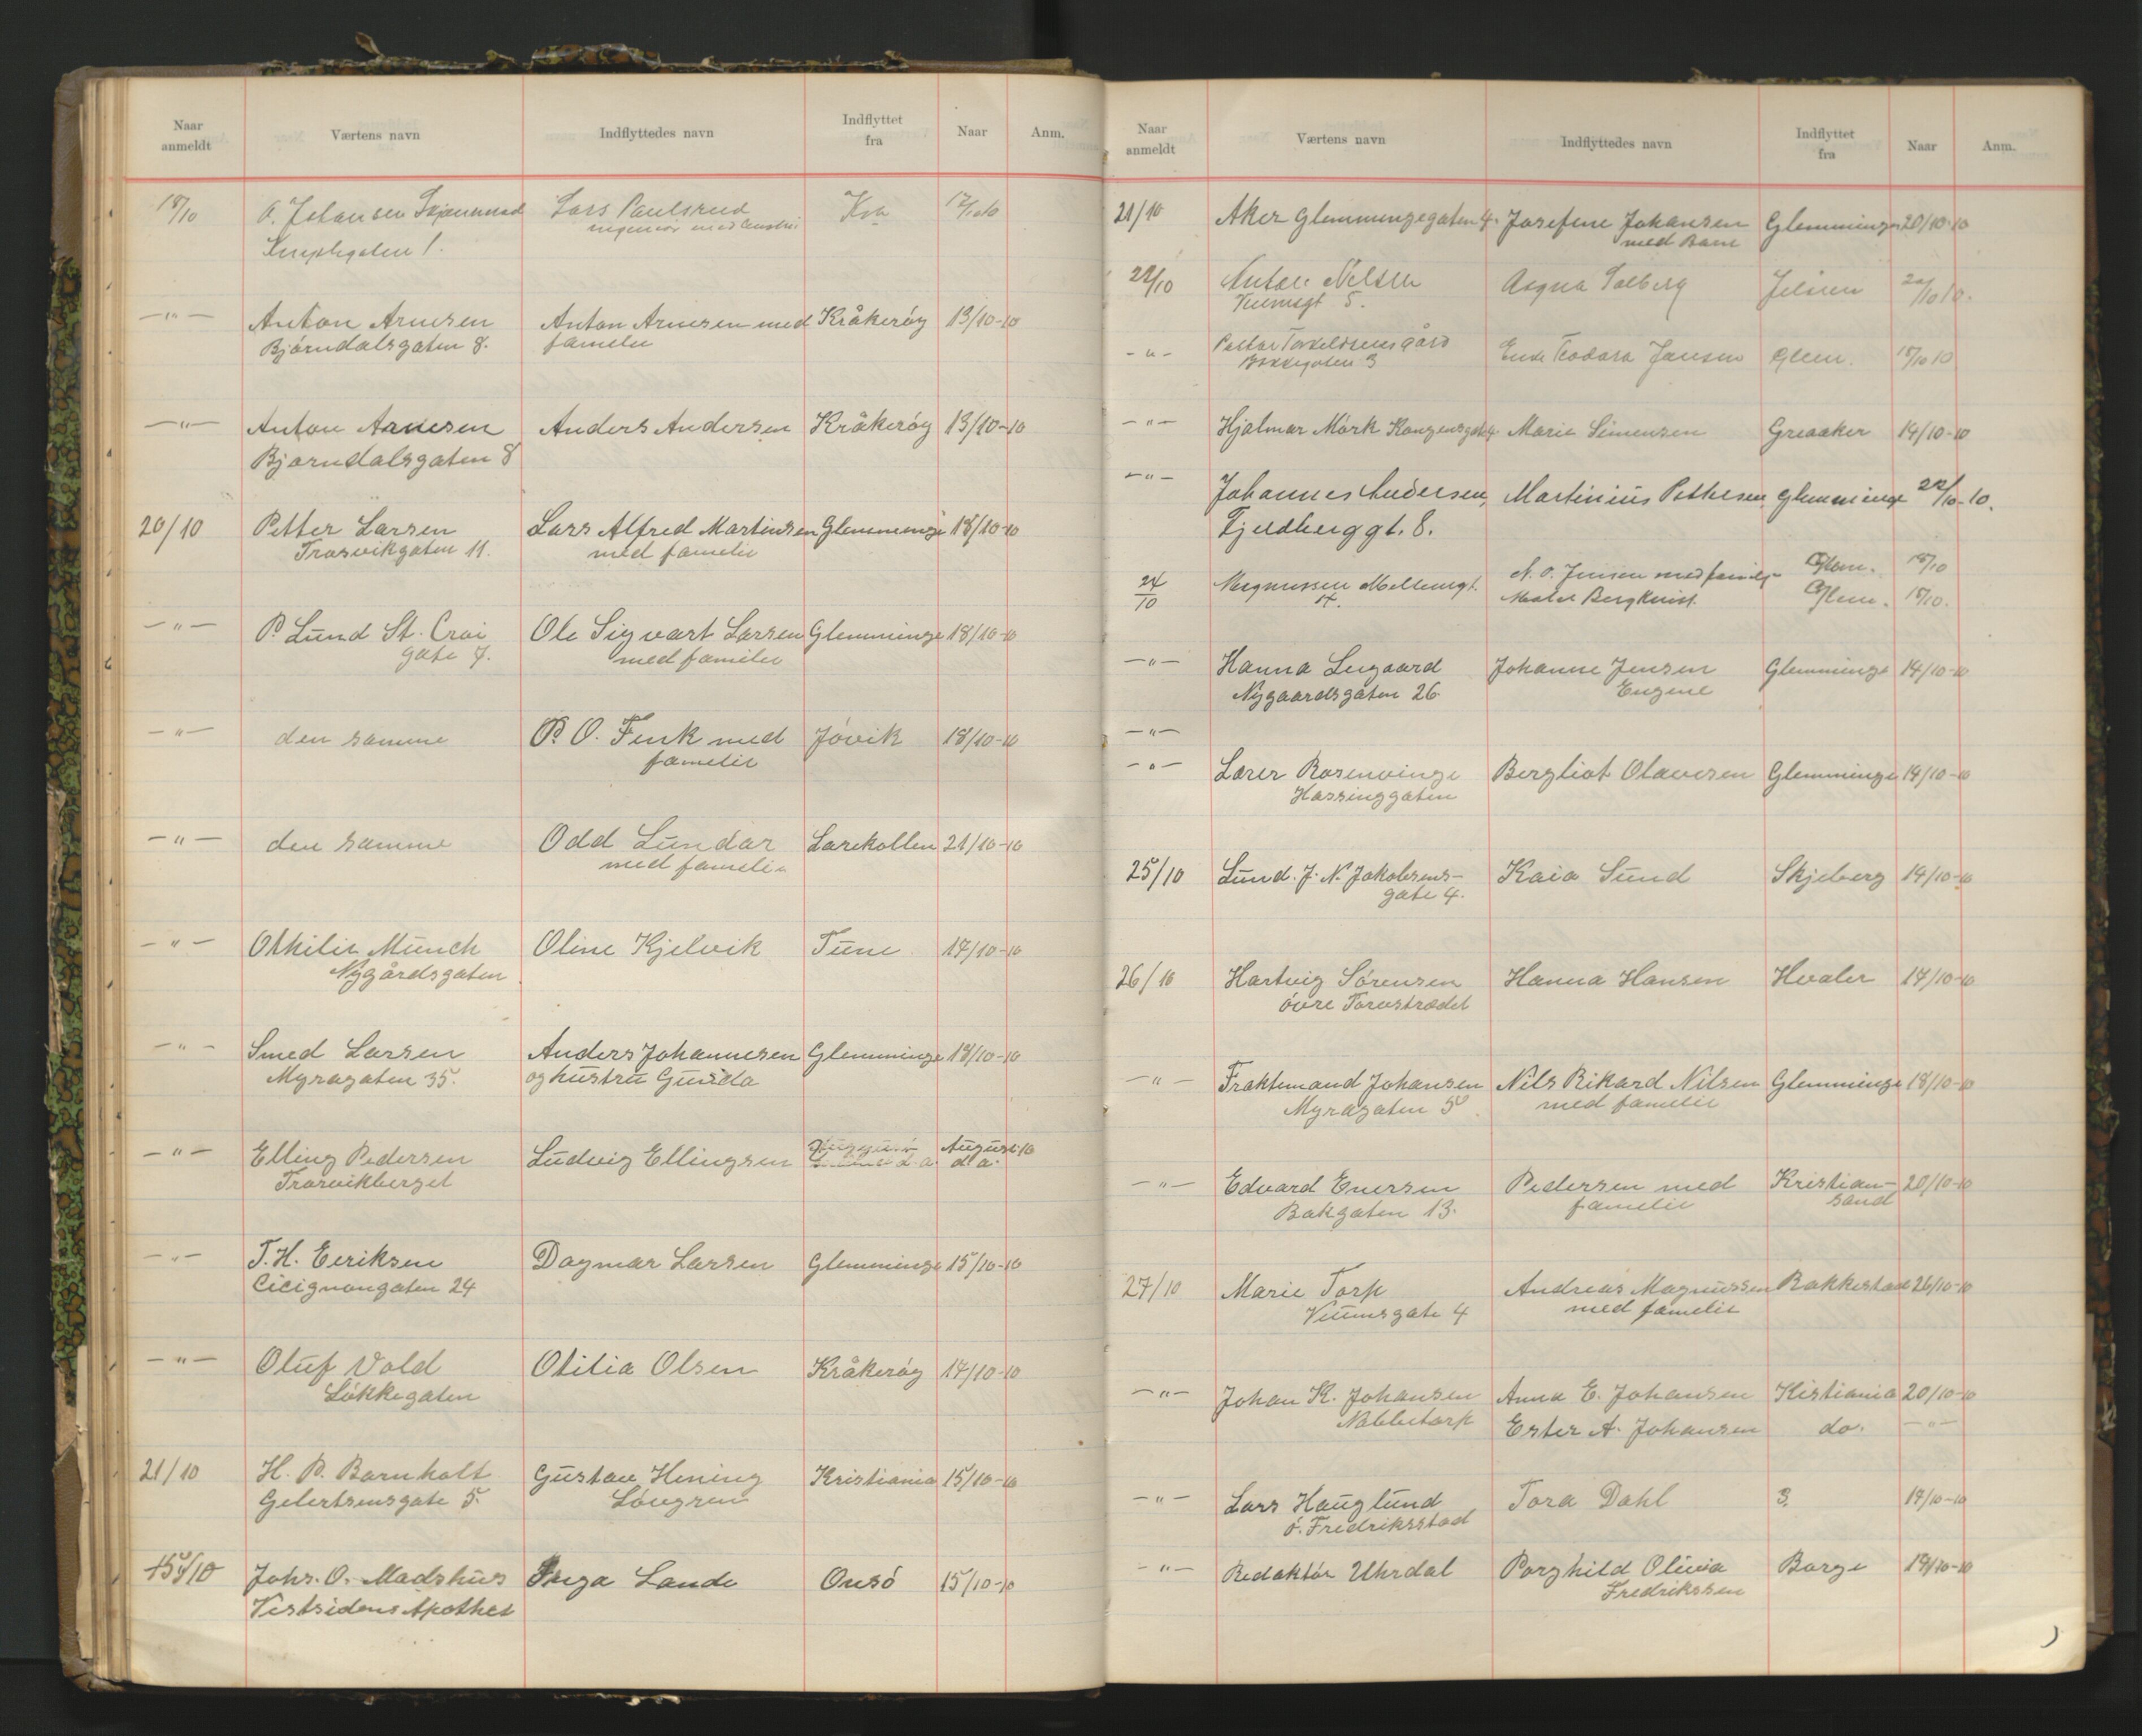 Naar anmeldt Værtens navn Indflyttedes navn Indflyttet fra Naar Anm.
18/10 O. Johansen Lars Paulsrud Kra 17/10 10
1. ingeniør med
—"— Anton Arnesen Anton Arnesen med Kråkeröy 13/10-10
Björndalsgaten 8. familie
—"— Anton Arnesen Anders Andersen Kråkeröy 13/10-10
Bjorndalsgaten 8
20/10 Petter Larsen Lars Alfred Martinsen Glemmenge 18/10-10
Trosvikgaten 11. med familie
—"— P. Lund St. Croi Ole Sigvart Larsen Glemminge 18/10-10
gate 7. med familie
—"— den samme P. O. Fenk med Jövik 18/10-10
familie
—"— den samme Odd Lundar Larekollen 21/10-10
med familie
—"— Othilie Munch Oline Kjelvik Tune 17/10-10
Nygårdsgaten
—"— Smed Larsen Anders Johannesen Glemminge 18/10-10
Myragaten 35. og hustru Gunda
—"— Elling Pedersen Ludvig Ellingsen August-10
Trosvikberget d. a. d a.
—"— T. H. Eeriksen Dagmar Larsen Glemminge 15/10-10
Cicignongaten 24
—"— Oluf Vold Otilia Olsen Kråkeröy 17/10-10
Lökkegaten
21/10 H. P. Barnholt Gustav Hening Kristiania 15/10-10
Gelertsensgate 5. Lövgren
15/10 Johs. O. Madshus Inga Lande Onsö 15/10-10
Vestsidens Apothek
Naar anmeldt Værtens navn Indflyttedes navn Indflyttet fra Naar Anm.
21/10 Aker Glemmingegaten 4. Josefine Johansen Glemminge 20/10-10
med Barn
22/10 Anton Nilsen Aagna Solberg 20/10 10.
Veumsgt 5.
-"- Petter Torkeldsens gård Teodora Jansen Glem. 15/10 10
3
—"— Hjalmar Mörk Kongensgt 4 Marie Simensen Greaaker 14/10-10
—"— Johannes Andersen, Martinius Pettersen, Glemminge 22/10-10.
Fjeldberggt. 8.
24/10 Magnussen Mellemgt. N. O. Jensen med familje Glem. 15/10
Bergkvist. Glem. 15/10.
—"— Hanna Lugaard Johanne Jensen Glemminge 14/10-10
Nygaardsgaten 26. Eugene
—"—
—"— Lærer Rosenvinge Bergliot Olavesen Glemminge 14/10-10
Hassinggaten
25/10 Lund. J. N. Jakobsens- Kaia Sund Skjeberg 14/10-10
gate 4.
26/10 Hartvig Sörensen Hanna Hansen Hvaler 14/10-10
övre Torvstrædet
—"— Fraktemand Johansen Nils Rikard Nilsen Glemminge 18/10-10
Myragaten 5 med familie
—"— Edvard Enersen Pedersen med Kristian- 20/10-10
Bakgaten 13. familie sand
27/10 Marie Torp Andreas Magnussen Rakkestad 26/10-10
Veumsgate 4 med familie
—"— Johan K. Johansen Anna E. Johansen Kistiania 20/10-10
Nabbetorp Ester A. Johansen do. —"—
—"— Lars Hauglund Tora Dahl 17/10-10
ö. Fredriksstad
—"— Redaktör Uhrdal Borghild Olivia Borge 19/10-10
Fredrikssen